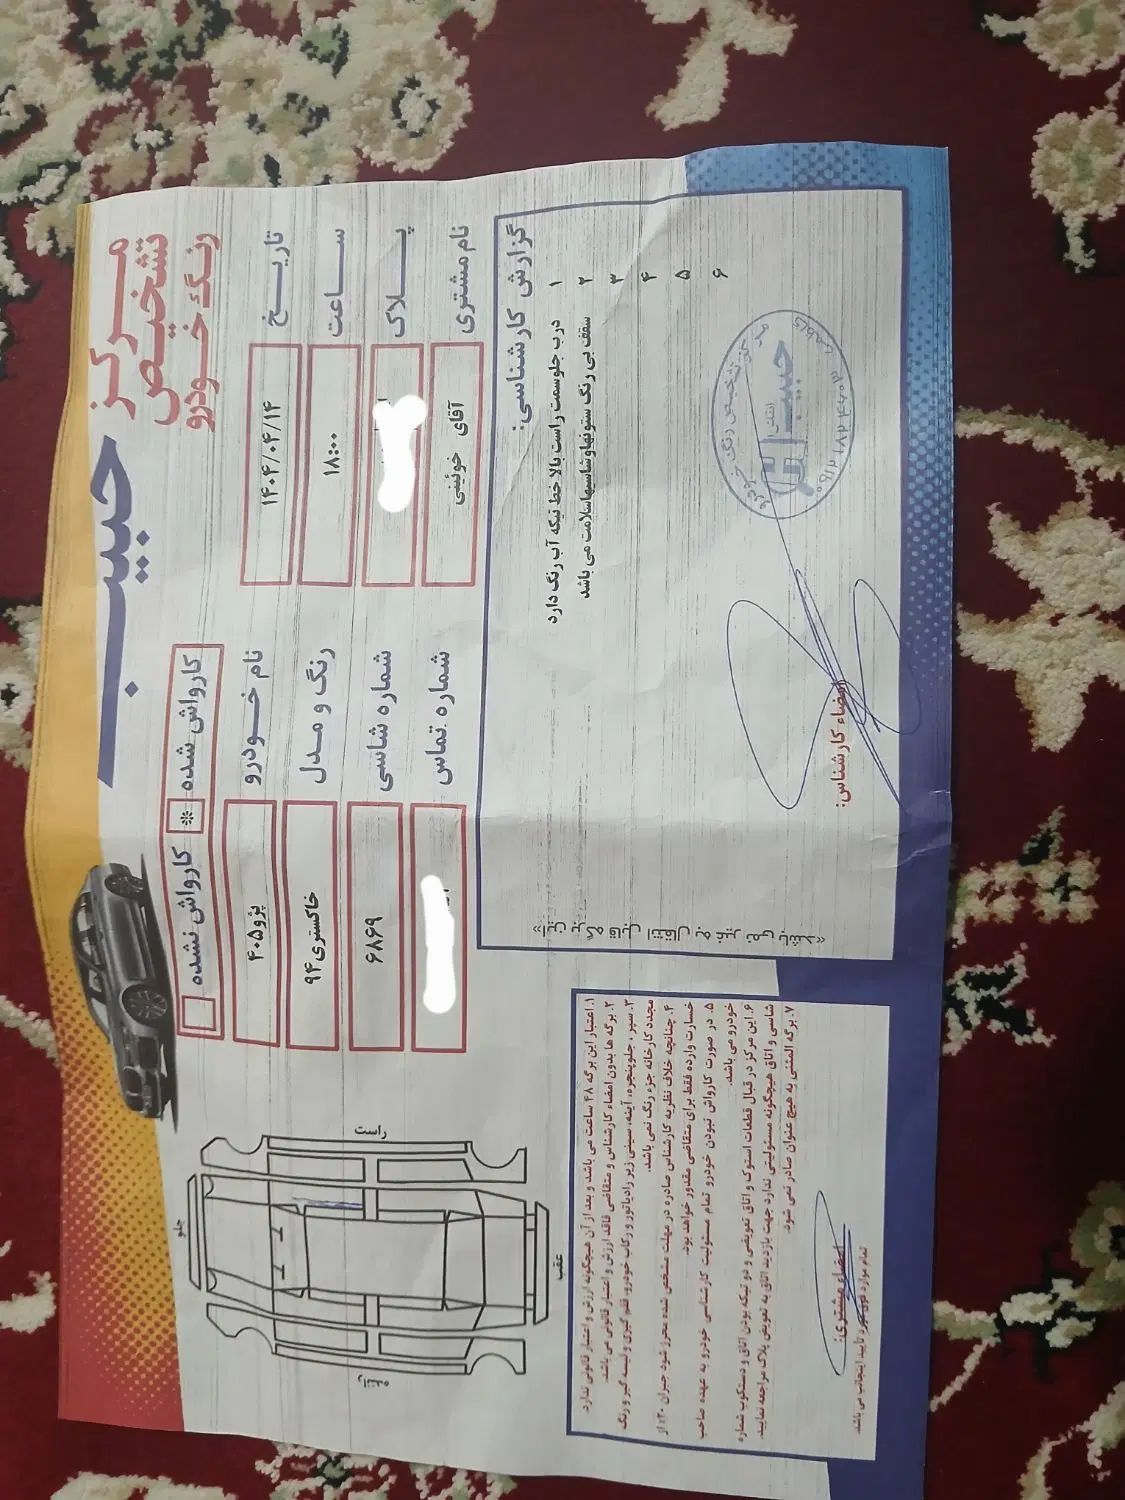 مرکز
تشخیص
رنگ خودرو
حبیب
کارواش شده
کارواش نشده
تاریخ
۱۴۰۴/۰۴/۱۴
ساعت
۱۸:۰۰
پلاک
نام مشتری
آقای خوئینی
نام خودرو
پژو۴۰۵
رنگ و مدل
خاکستری ۹۴
شماره شاسی
۶۸۶۹
شماره تماس
گزارش کارشناسی:
۱ درب جلوسمت راست بالا خط تیکه آب رنگ دارد
۲ سقف بی رنگ ستونهاوشاسیهاسلامت می باشد
۳
۴
۵
۶
مرکز تشخیص رنگ خودرو
حبیب
امضاء کارشناس:
جلو
عقب
راننده
۱. اعتبار این برگه ۴۸ ساعت می باشد و بعد از آن هیچگونه ارزش و اعتبار قانونی ندارد.
۲. برگه ها بدون امضاء کارشناس و متقاضی فاقد ارزش و اعتبار قانونی می باشد.
۳. سپر، جلوپنجره، آینه، سینی زیر رادیاتور و رکاب خودرو، قلم گیری و لیسه گیر و رنگ
مجدد کارخانه جزء رنگ نمی باشد.
۴. چنانچه خلاف نظریه کارشناس صادره در مهلت مشخص شده محرز شود جبران ۳۰٪ از
خسارت وارده فقط برای متقاضی مقدور خواهد بود.
۵. در صورت کارواش نبودن خودرو تمام مسئولیت کارشناسی خودرو به عهده صاحب
خودرو می باشد.
۶. این مرکز در قبال قطعات استوک و اتاق تعویضی و دو تیکه بودن اتاق و دستکوب شماره
شاسی و اتاق هیچگونه مسئولیتی ندارد جهت بازدید اتاق به تعویض پلاک مراجعه نمایید.
۷. برگه المثنی به هیچ عنوان صادر نمی شود.
امضاء مشتری:
تمام موارد فوق مورد تأیید اینجانب می باشد.